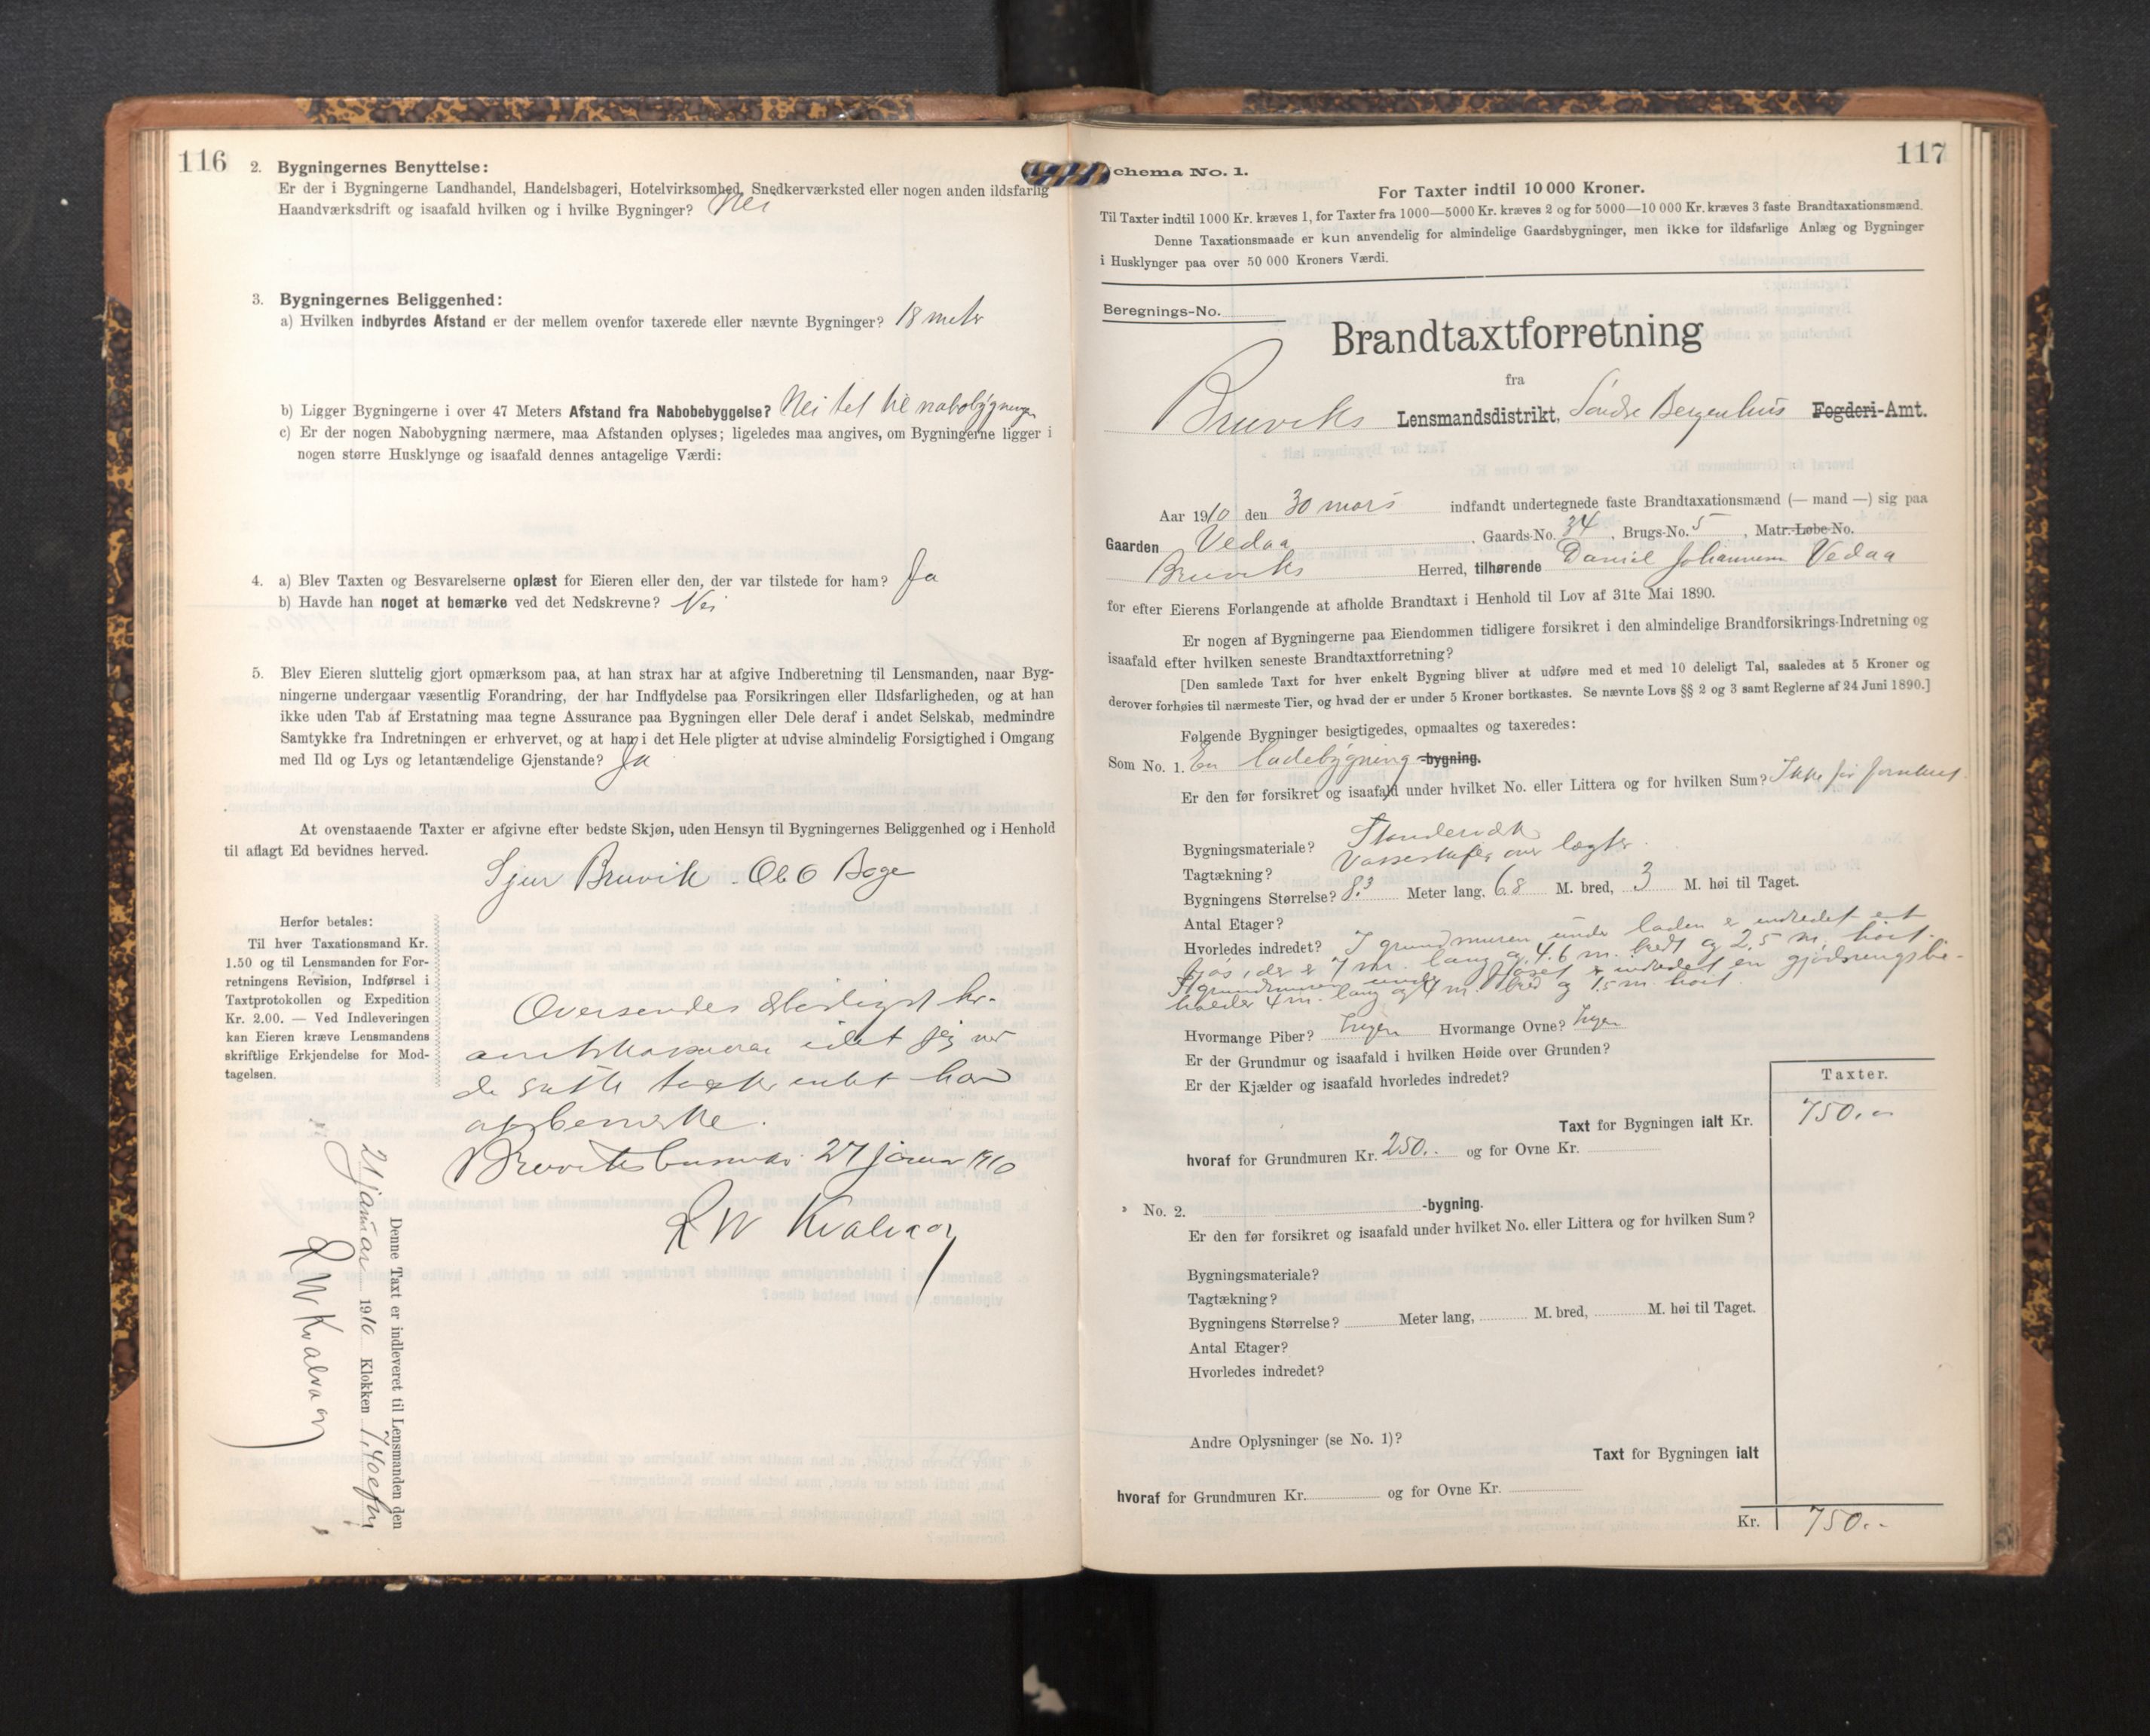 116
2. Bygningernes Benyttelse:
Er der i Bygningerne Landhandel, Handelsbageri, Hotelvirksomhed, Snedkerværksted eller nogen anden ildsfarlig
Haandværksdrift og isaafald hvilken og i hvilke Bygninger? Nei
3. Bygningernes Beliggenhed:
a) Hvilken indbyrdes Afstand er der mellem ovenfor taxerede eller nævnte Bygninger? 18 meter
b) Ligger Bygningerne i over 47 Meters Afstand fra Nabobebyggelse? Nei tet til nabobygninger
c) Er der nogen Nabobygning nærmere, maa Afstanden oplyses; ligeledes maa angives, om Bygningerne ligger i
nogen større Husklynge og isaafald dennes antagelige Værdi:
4. a) Blev Taxten og Besvarelserne oplæst for Eieren eller den, der var tilstede for ham? Ja
b) Havde han noget at bemærke ved det Nedskrevne? Nei
5. Blev Eieren sluttelig gjort opmærksom paa, at han strax har at afgive Indberetning til Lensmanden, naar Byg-
ningerne undergaar væsentlig Forandring, der har Indflydelse paa Forsikringen eller Ildsfarligheden, og at han
ikke uden Tab af Erstatning maa tegne Assurance paa Bygningen eller Dele deraf i andet Selskab, medmindre
Samtykke fra Indretningen er erhvervet, og at han i det Hele pligter at udvise almindelig Forsigtighed i Omgang
med Ild og Lys og letantændelige Gjenstande? Ja
At ovenstaaende Taxter er afgivne efter bedste Skjøn, uden Hensyn til Bygningernes Beliggenhed og i Henhold
til aflagt Ed bevidnes herved.
Sjur Bruvik. Ole O Boge
Herfor betales:
Til hver Taxationsmand Kr.
1.50 og til Lensmanden for For-
retningens Revision, Indførsel i
Taxtprotokollen og Expedition
Kr. 2.00. — Ved Indleveringen
kan Eieren kræve Lensmandens
skriftlige Erkjendelse for Mod-
tagelsen.
Oversendes ærbødigst hr.
amtskasserer idet jeg ved
de satte takster intet har
at bemerke.
27 januar 1910
R W Kvalvaag
Denne Taxt er indleveret til Lensmanden den
21 januar 1910 Klokken 7,40 efm
R W Kvalvaag
117
chema No. 1.
For Taxter indtil 10 000 Kroner.
Til Taxter indtil 1000 Kr. kræves 1, for Taxter fra 1000—5000 Kr. kræves 2 og for 5000—10 000 Kr. kræves 3 faste Brandtaxationsmænd.
Denne Taxationsmaade er kun anvendelig for almindelige Gaardsbygninger, men ikke for ildsfarlige Anlæg og Bygninger
i Husklynger paa over 50 000 Kroners Værdi.
Beregnings-No.
Brandtaxtforretning
fra
Bruviks Lensmandsdistrikt, Søndre Bergenhus Fogderi-Amt.
Aar 1910 den 30 mars indfandt undertegnede faste Brandtaxationsmænd (— mand —) sig paa
Gaarden Vedaa, Gaards-No. 34, Brugs-No. 5, Matr.-Løbe-No.
Bruviks Herred, tilhørende Daniel Johannesen Vedaa
for efter Eierens Forlangende at afholde Brandtaxt i Henhold til Lov af 31te Mai 1890.
Er nogen af Bygningerne paa Eiendommen tidligere forsikret i den almindelige Brandforsikrings-Indretning og
isaafald efter hvilken seneste Brandtaxtforretning?
[Den samlede Taxt for hver enkelt Bygning bliver at udføre med et med 10 deleligt Tal, saaledes at 5 Kroner og
derover forhøies til nærmeste Tier, og hvad der er under 5 Kroner bortkastes. Se nævnte Lovs §§ 2 og 3 samt Reglerne af 24 Juni 1890.]
Følgende Bygninger besigtigedes, opmaaltes og taxeredes:
Som No. 1. En ladebygning -bygning.
Er den før forsikret og isaafald under hvilket No. eller Littera og for hvilken Sum? Ikke før forsikret.
Bygningsmateriale? Standerværk
Tagtækning? over lægter.
Bygningens Størrelse? 8.3 Meter lang, 6.8 M. bred, 3 M. høi til Taget.
Antal Etager?
Hvorledes indredet? I grundmuren under laden er indredet et
fjøs, der er 7 m. lang og 4.6 m. bredt og 2,5 m. høit.
I grundmuren under fjøset er indredet en gjødsningsbe-
holder 4 m. lang og 4 m. bred og 1.5 m. høit.
Hvormange Piber? Ingen Hvormange Ovne? Ingen
Er der Grundmur og isaafald i hvilken Høide over Grunden?
Er der Kjælder og isaafald hvorledes indredet?
Taxter.
Taxt for Bygningen ialt Kr. 750.-
hvoraf for Grundmuren Kr. 250.- og for Ovne Kr.
No. 2. -bygning.
Er den før forsikret og isaafald under hvilket No. eller Littera og for hvilken Sum?
Bygningsmateriale?
Tagtækning?
Bygningens Størrelse? Meter lang, M. bred, M. høi til Taget.
Antal Etager?
Hvorledes indredet?
Andre Oplysninger (se No. 1)?
Taxt for Bygningen ialt
hvoraf for Grundmuren Kr. og for Ovne Kr.
Kr. 750.-